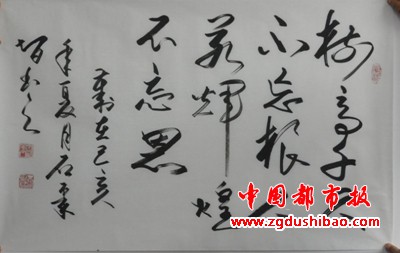 树高千尺
不忘根人
若輝煌
不忘恩
歲在己亥
年夏月石
书
中国都市报
www.zgdushibao.com